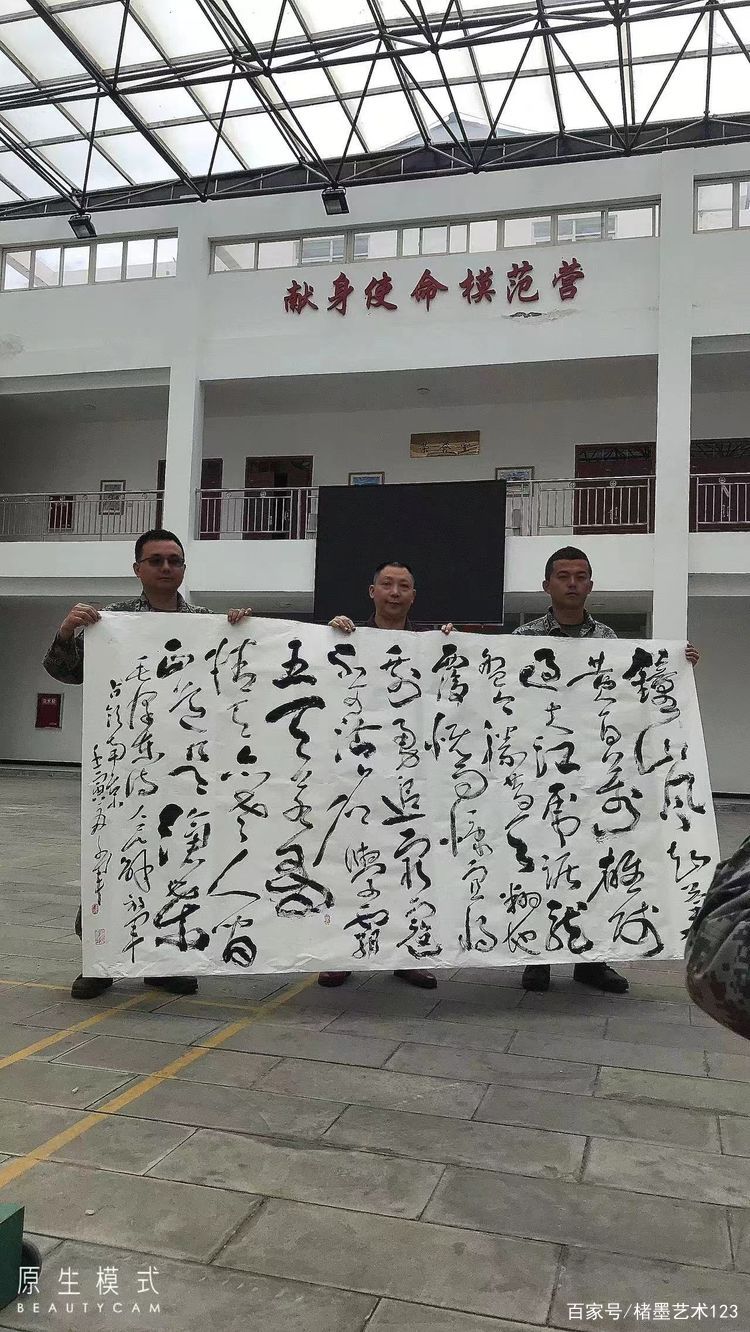 献身使命模范营
鐘山风雨起苍
黄百万雄师
过大江虎踞龙
盘今胜昔天翻地
覆慨而慷宜将
剩勇追穷寇
不可沽名学霸
王天若有
情天亦老人间
正道是沧桑
毛泽东诗人民解放军
占领南京
原生模式
BEAUTYCAM
百家号/楮墨艺术123